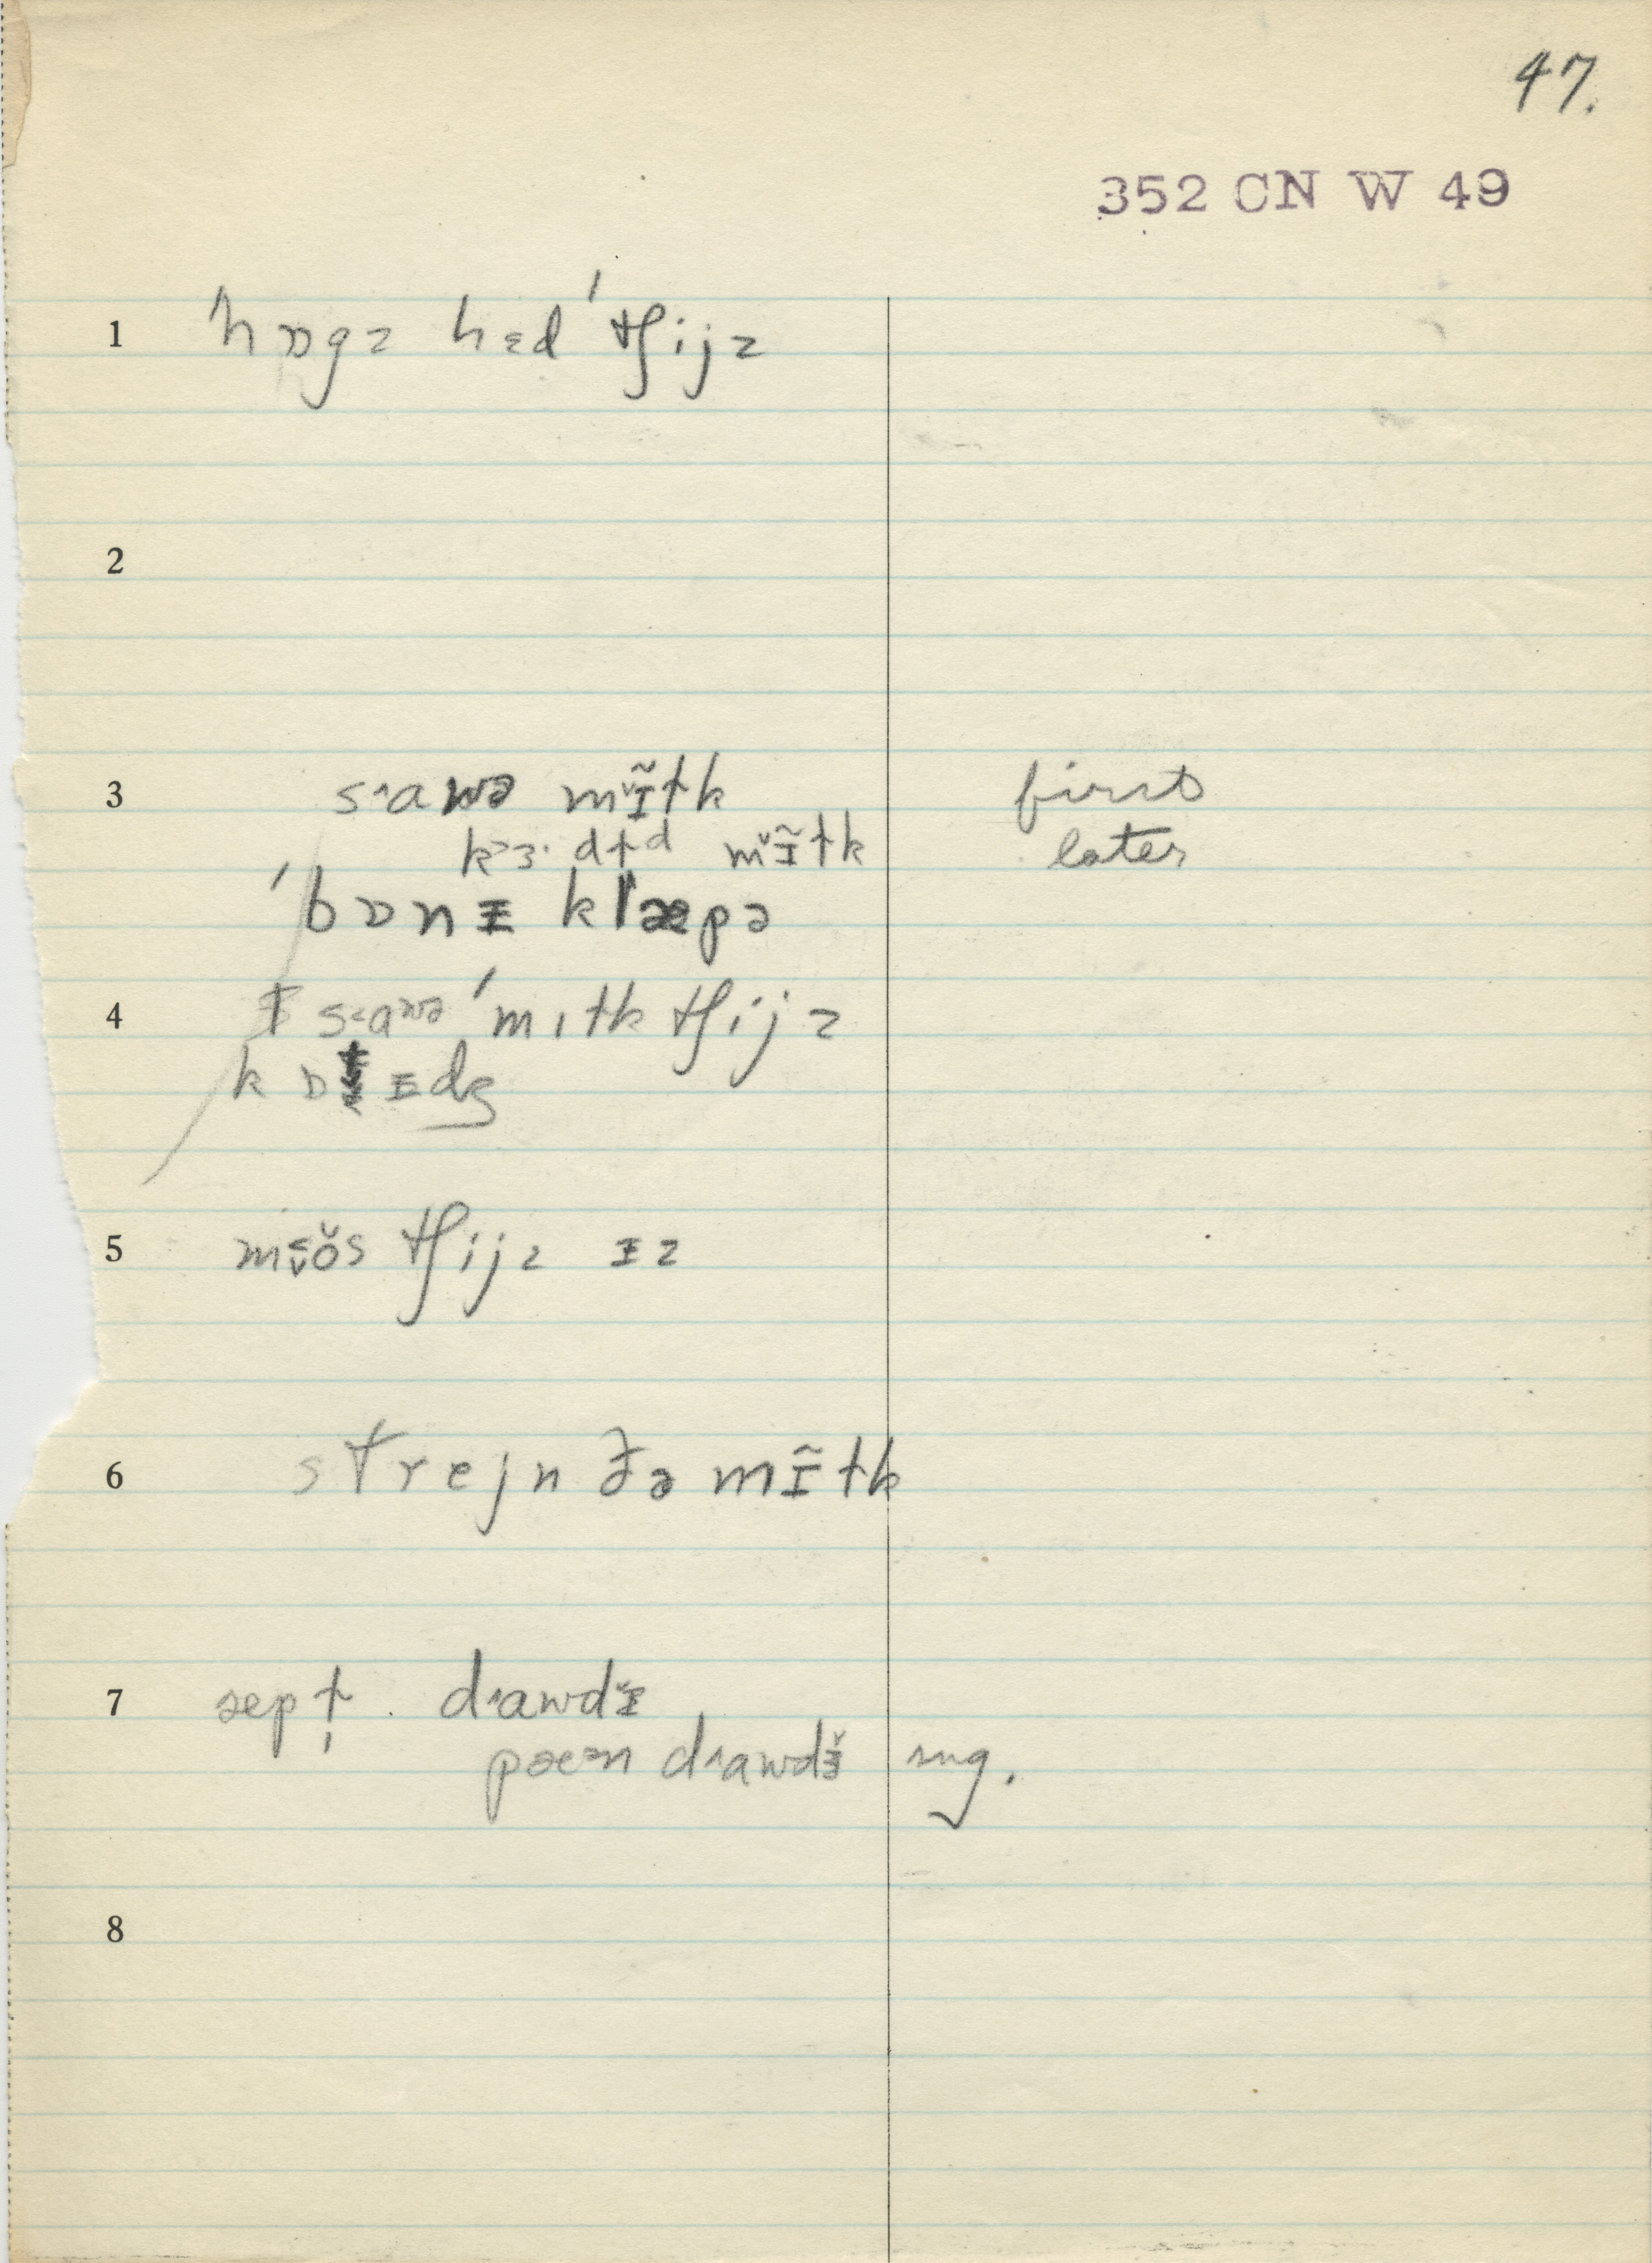 47.
352 CN W 49
1 ˈhɒgz hɛd ˈtʃijz
2
3 sᴧawə mɪ̃tk first
kɜ·dɫd mɪ̃tk later
ˈbɒnɪ klæpə
4 sᴧawə ˈmɪtk tʃijz
kɒtɪdʒ
5 tʃijz ɪz
6 strejn ðə mɪ̃tk
7 dᴧawdɪ
pæən dᴧawdɪ sug.
8